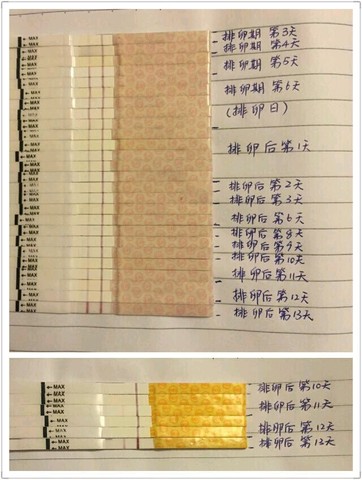 排卵期 第3天
排卵期 第4天
排卵期 第5天
排卵期 第6天
(排卵日)
排卵后 第1天
排卵后 第2天
排卵后 第3天
排卵后 第6天
排卵后 第8天
排卵后 第9天
排卵后 第10天
排卵后 第11天
排卵后 第12天
排卵后 第13天
MAX
MAX
MAX
MAX
MAX
MAX
排卵后 第10天
排卵后 第11天
排卵后 第12天
排卵后 第13天